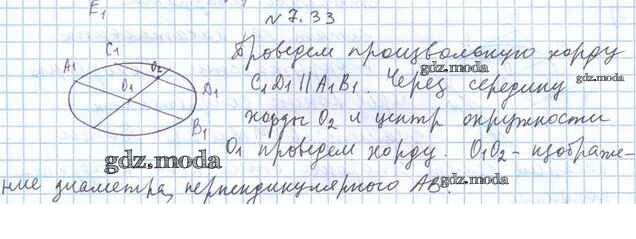 E₁
N 7.33
C₁
A₁
O₂
O₁
D₁
B₁
Проведем произвольную хорду
C₁D₁ || A₁B₁. Через середину
хорды O₂ и центр окружности
O₁ проведем хорду. O₁O₂ - изображе-
ние диаметра, перпендикулярного AB.
gdz.moda
gdz.moda
gdz.moda
gdz.moda